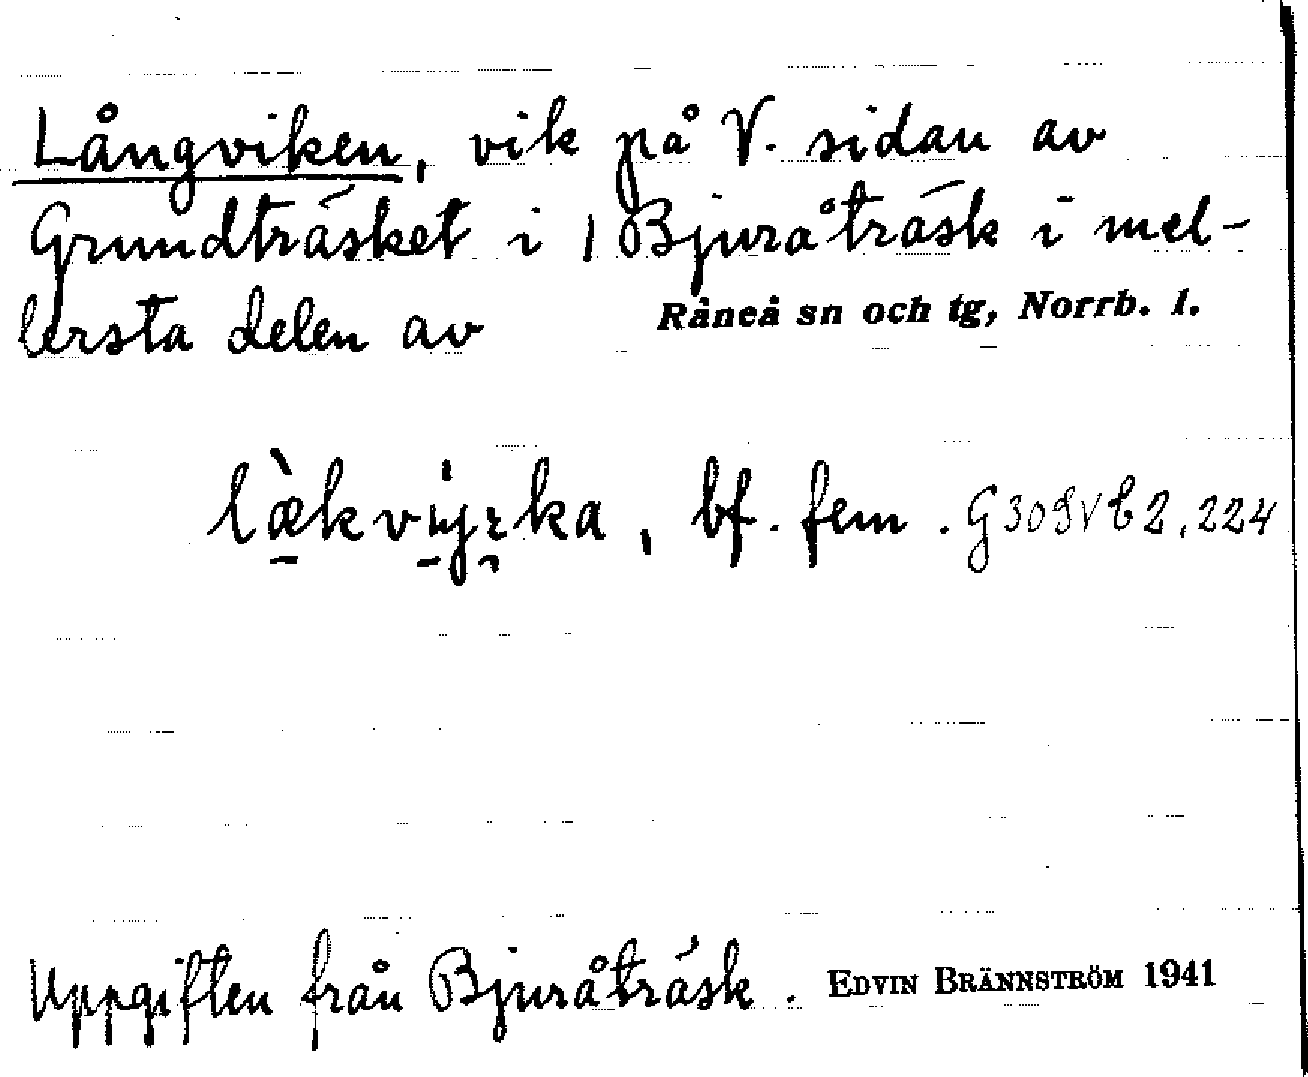 Långviken, vik på V. sidan av
Grundträsket i Bjuråträsk i mel-
lersta delen av Råneå sn och tg, Norrb. l.
bf. fem.
Uppgiften från Bjuråträsk. EDVIN BRÄNNSTRÖM 1941